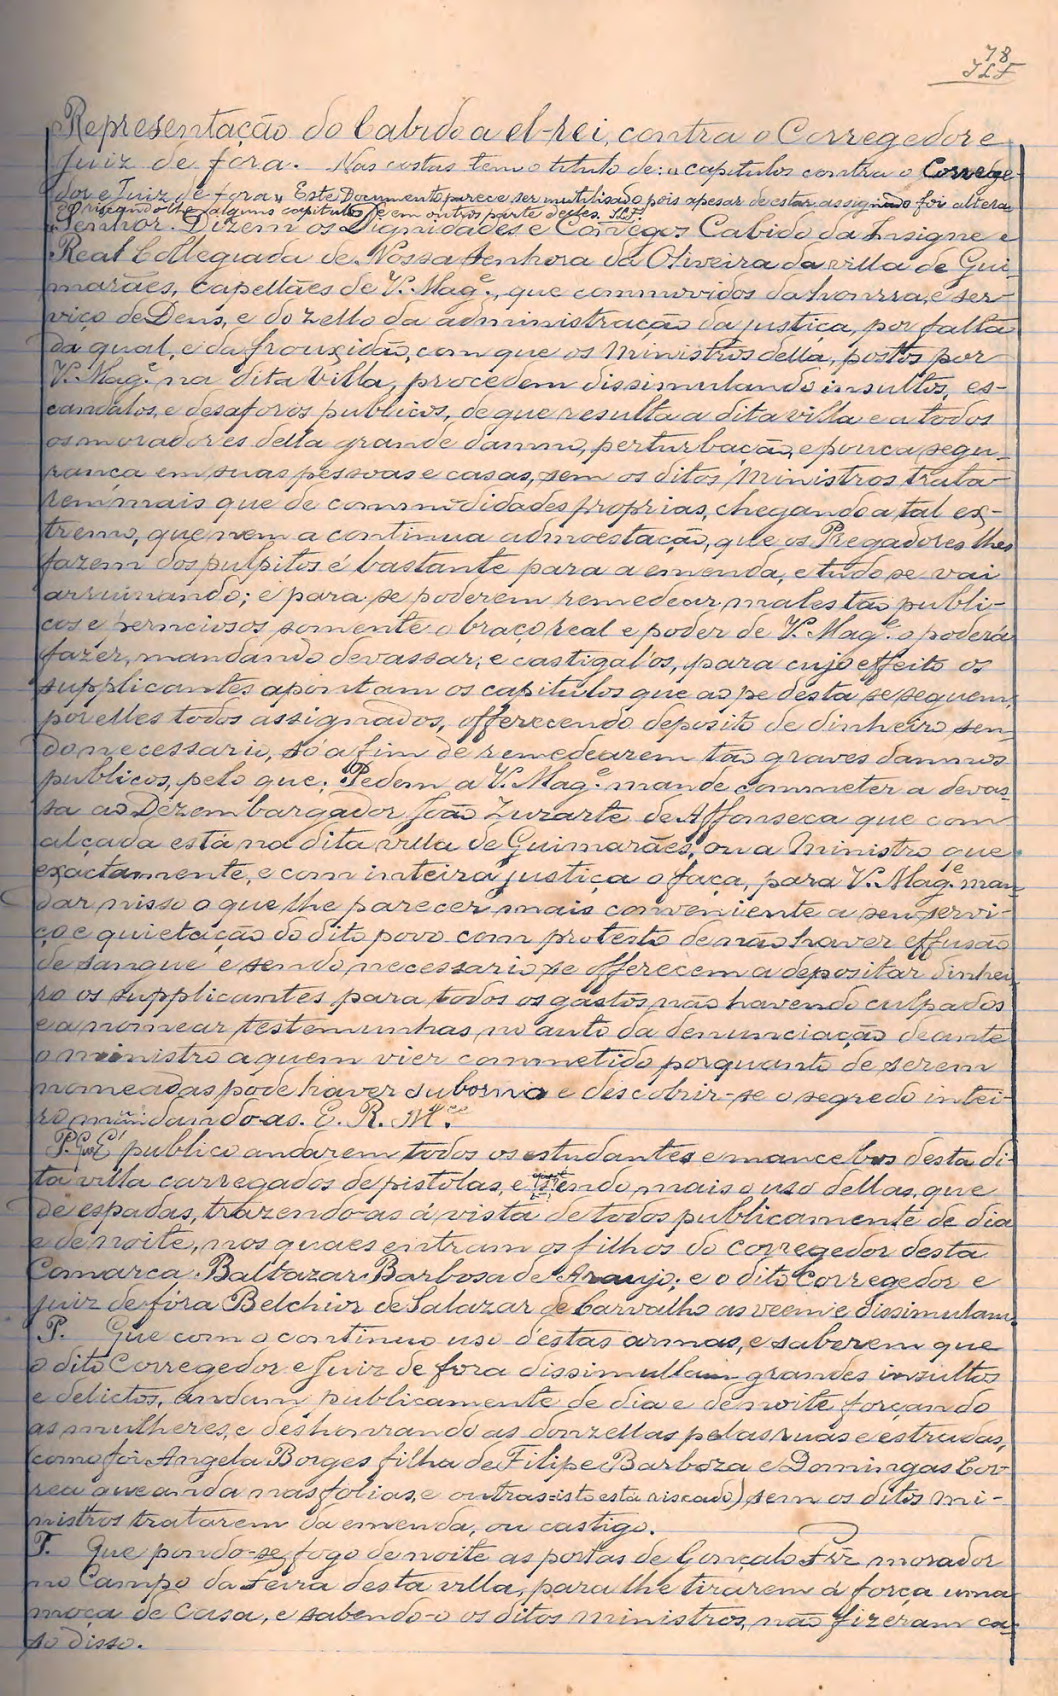 78
JLF
Representação do Cabido a el-rei, contra o Corregedor e
Juiz de fóra. Nas costas tem o titulo de: "capitulos contra o Correge-
dor e Juiz de fora" Este Documento parece ser mutilado pois apesar de estar assignado foi altera-
do riscando-lhe alguns capitulos e em outros parte delles. JLF.
"Senhor. Dizem os Dignidades e Conegos Cabido da Insigne e
Real Collegiada de Nossa Senhora da Oliveira da villa de Gui-
marães, capellães de V. Mag.e, que commovidos da honrra, e ser-
viço de Deus, e do zello da administração da justiça, por falta
da qual, e da frouxidão, com que os Ministros della, postos por
V. Mag.e na dita Villa, procedem dissimulando insultos, es-
candalos, e desaforos publicos, de que resulta a dita villa e a todos
os moradores della grande damno, perturbação, e pouca segu-
rança em suas pessoas e casas, sem os ditos Ministros trata-
rem mais que de commodidades proprias, chegando a tal ex-
tremo, que nem a continua admoestação, que os Pregadores lhes
fazem dos pulpitos é bastante para a emenda, e tudo se vai
arruinando; e para se poderem remedear males tão publi-
cos e perniciosos somente o braço real e poder de V. Mag.e o poderá
fazer, mandando devassar, e castigal'os, para cujo effeito os
supplicantes apontam os capitulos que ao pe desta se seguem,
por elles todos assignados, offerecendo deposito de dinheiro sen-
do necessario, só a fim de remedearem tão graves damnos
publicos, pelo que; Pedem a V. Mag.e mande commeter a devas-
sa ao Dezembargador João Zuzarte de Affonseca que com
alçada está na dita villa de Guimarães, ou a Ministro que
exactamente, e com inteira justiça o faça, para V. Mag.e man-
dar nisso o que lhe parecer mais conveniente a seu servi-
ço e quietação do dito povo com protesto de não haver effusão
de sangue e sendo necessario se offerecem a depositar dinhei-
ro os supplicantes para todos os gastos não havendo culpados
e a nomear testemunhas no auto da denunciação deante
o ministro a quem vier commetido porquanto de serem
nomeadas pode haver suborno e descobrir-se o segredo intei-
ro mandando-as. E. R. M.ce
P. Que É publico andarem todos os estudantes e mancebos desta di-
ta villa carregados de pistolas, e tendo mais o uso dellas, que
de espadas, trazendo-as á vista de todos publicamente de dia
e de noite, nos quaes entram os filhos do corregedor desta
Comarca Baltazar Barbosa de Araujo; e o dito Corregedor e
juiz de fóra Belchior de Salazar de Carvalho as veem e dissimulam.
P. Que com o continuo uso d'estas armas, e saberem que
o dito Corregedor e Juiz de fora dissimullam grandes insultos
e delictos, andam publicamente de dia e de noite forçando
as mulheres, e deshonrando as donzellas pelas ruas e estradas,
(como foi Angela Borges filha de Filipe Barboza e Domingas Cor-
rea que anda nas folias, e outras-isto está riscado) sem os ditos mi-
nistros tratarem da emenda, ou castigo.
P. Que pondo-se fogo de noite as portas de Gonçalo Frz morador
no Campo da Feira desta villa, para lhe tirarem á força uma
moça de casa, e sabendo-o os ditos ministros, não fizeram ca-
so disso.